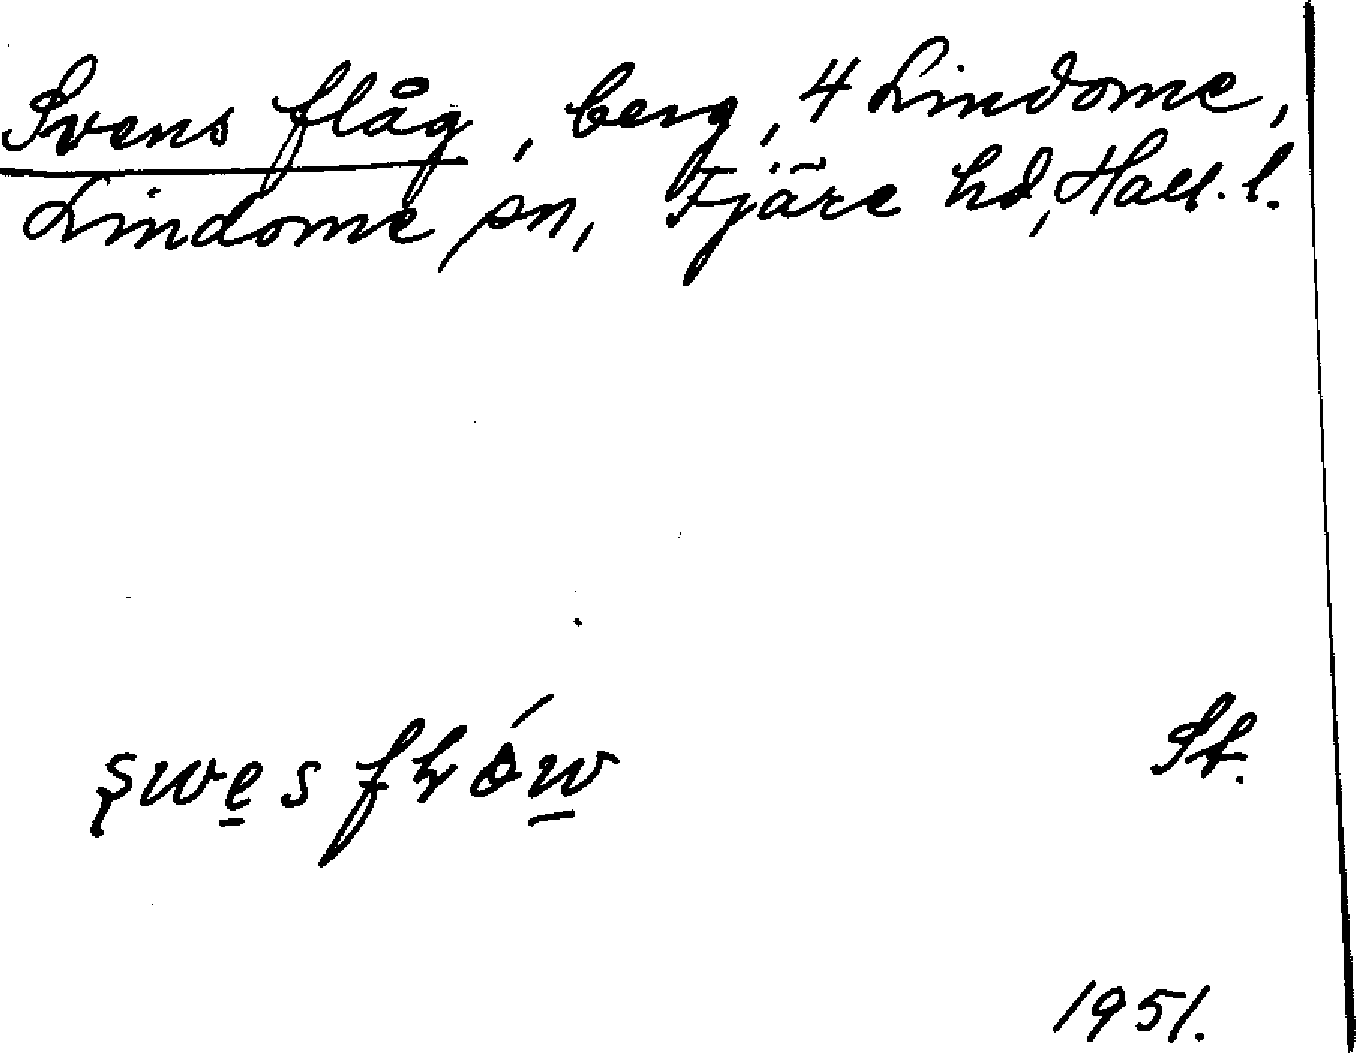 Svens flåg, berg, 4 Lindome,
Lindome sn, Fjäre hd, Hall. l.
St.
1951.